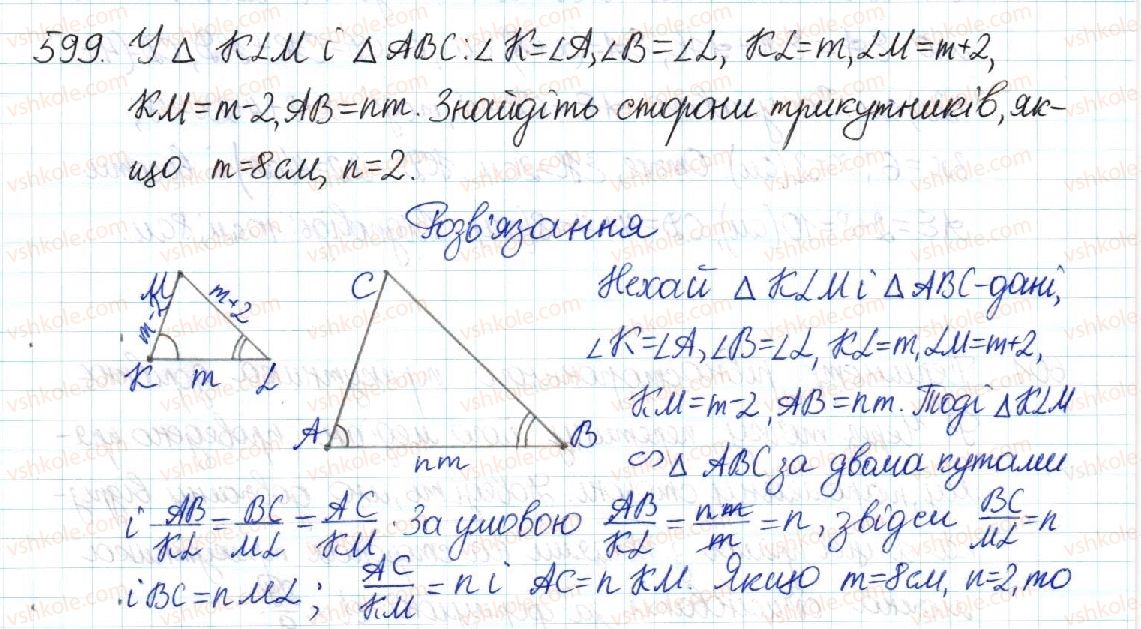 599. У △ KLM і △ ABC: ∠K=∠A, ∠B=∠L, KL=m, LM=m+2,
KM=m-2, AB=nm. Знайдіть сторони трикутників, як-
що m=8см, n=2.
Розв'язання
Нехай △ KLM і △ ABC-дані,
∠K=∠A, ∠B=∠L, KL=m, LM=m+2,
KM=m-2, AB=nm. Тоді △ KLM
∽ △ ABC за двома кутами
M C
m-2 m+2
K m L
A nm B
і AB/KL = BC/ML = AC/KM. За умовою AB/KL = nm/m = n, звідси BC/ML = n
і BC=nML; AC/KM = n і AC=n KM. Якщо m=8см, n=2, то
vshkole.com